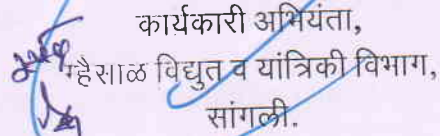 कार्यकारी अभियंता,
म्हैसाळ विद्युत व यांत्रिकी विभाग,
सांगली.